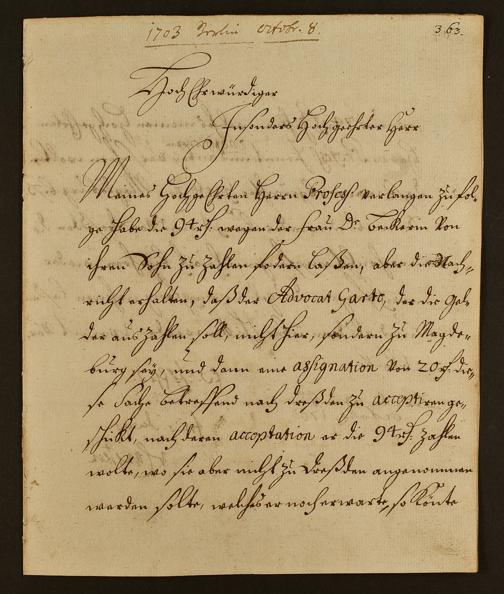 1703 Berlin Octobr. 8.
363.
HochEhrwürdiger
Insonders Hochgeehrter Herr
Meines Hochgeehrten Herrn Profess: verlangen zu fol-
ge habe die 94 rh. wegen der Frau Dr. Beckerin von
ihren Sohn zu zahlen fodern laßen, aber die Nach-
richt erhalten, daß der Advocat Garto, der die Gel-
der auszahlen soll, nicht hier, sondern zu Magde-
burg sey, und dann eine assignation von 20 rh die-
se Sache betreffend nach Dreßden zu acceptiren ge-
schickt, nach deren acceptation er die 94 rh. zahlen
wolte, wo sie aber nicht zu Dreßden angenommen
werden solte, welches er noch erwarte, so könte